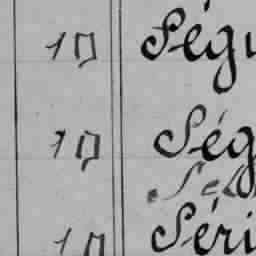 10 Ségu
10 Ség
10 Séri